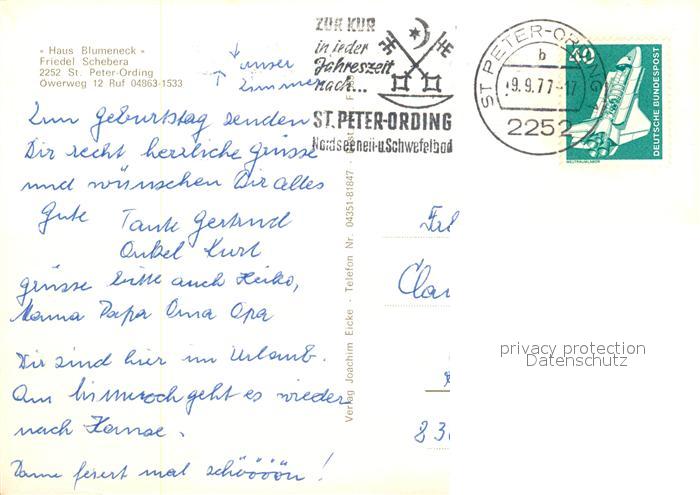 « Haus Blumeneck »
Friedel Schebera
2252 St. Peter-Ording
Öwerweg 12 Ruf 04863-1533
↓ unser
↑ Zimmer
ZUR KUR
in jeder
Jahreszeit
nach...
ST. PETER-ORDING
Nordseeheil-u.Schwefelbad
ST PETER-ORDING 1
b
9.9.77-17
2252
40
DEUTSCHE BUNDESPOST
WELTRAUMLABOR
Zum Geburtstag senden
Dir recht herzliche Grüsse
und wünschen Dir alles
Gute Tante Gertrud
Onkel Kurt
grüsse bitte auch Heiko,
Mama Papa Oma Opa
Wir sind hier im Urlaub.
Am geht es wieder
nach Hause.
feiert mal schööööön!
Verlag Joachim Eicke · Telefon Nr. 04351-81847
Cla
privacy protection
Datenschutz